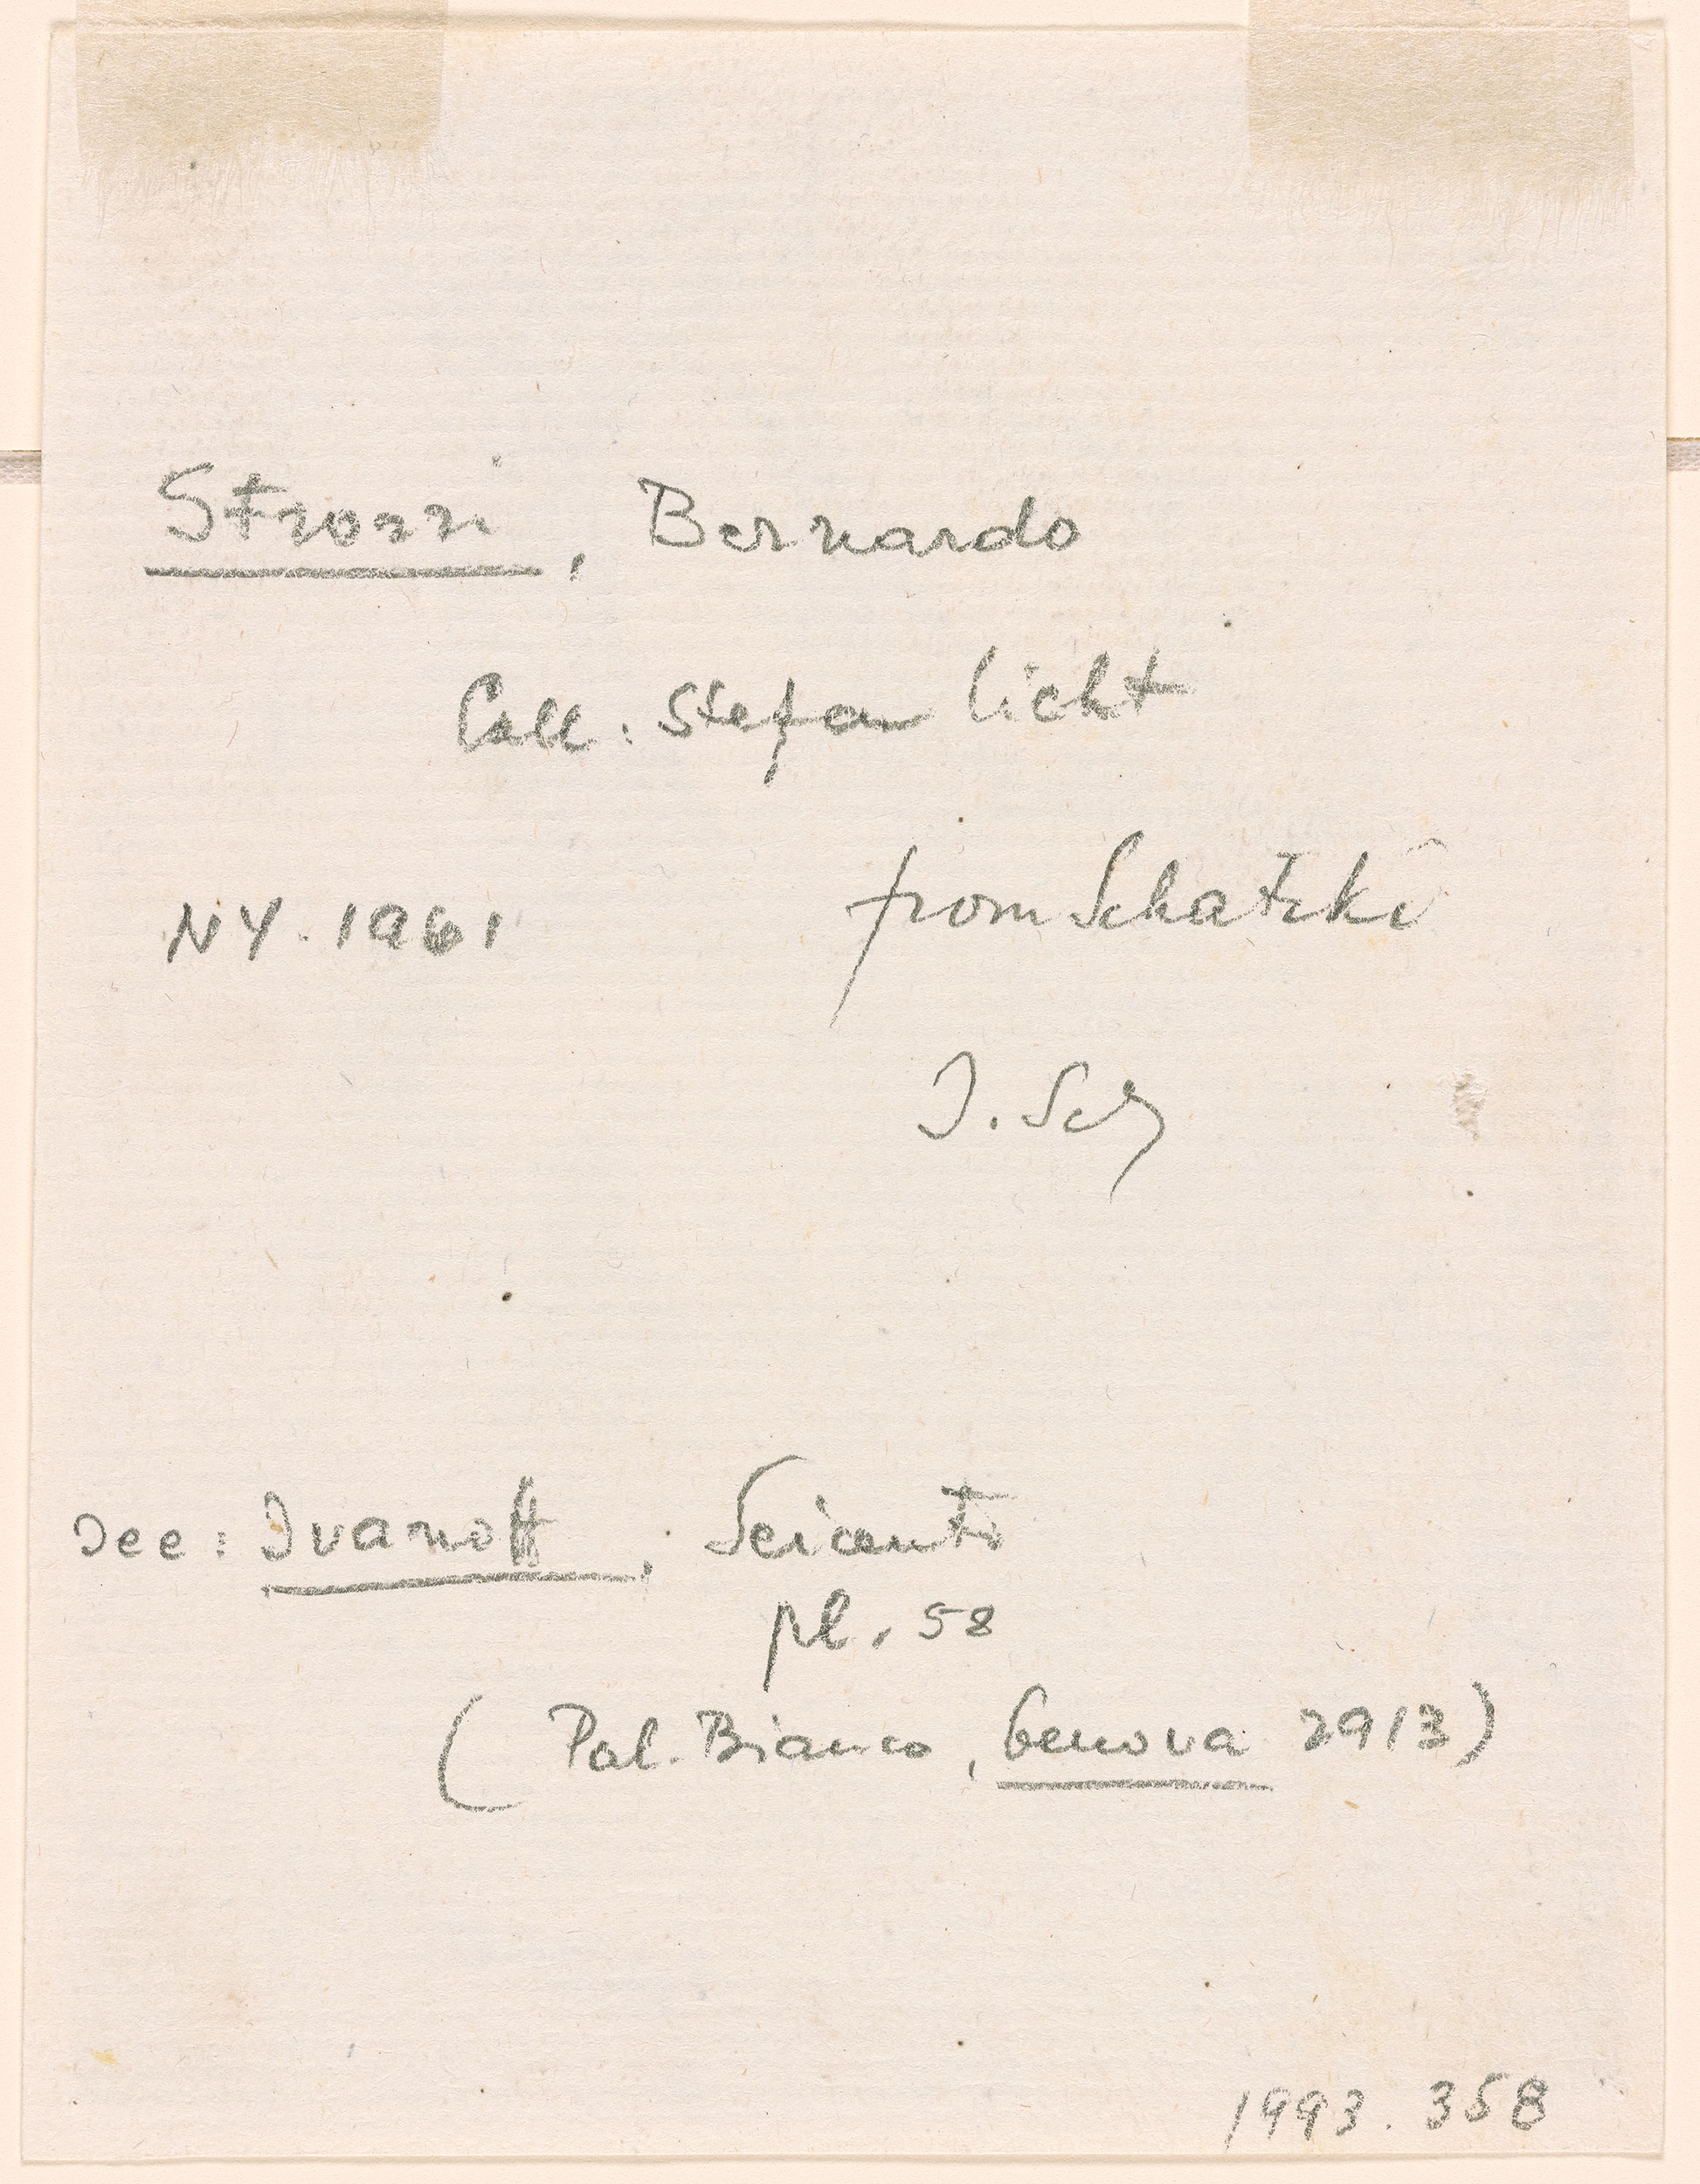 Strozzi, Bernardo
Coll: Stefan Licht
NY. 1961 from Schatzki
J. Sch
See: Ivanoff, Seicento
pl. 58
(Pal. Bianco, Genova 2913)
1993.358